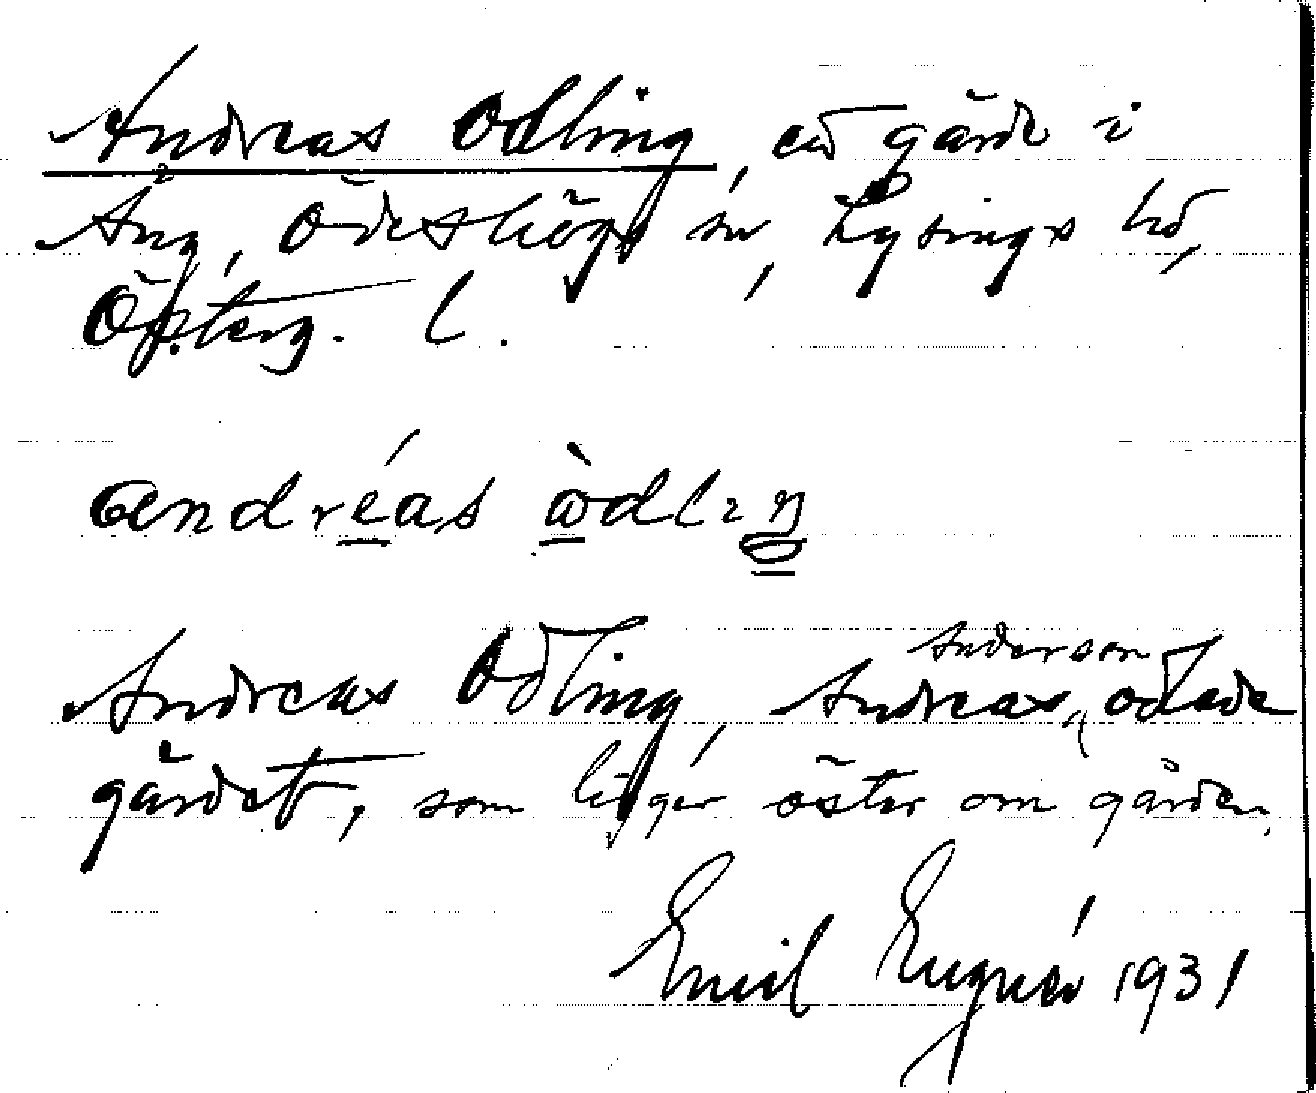 Andreas Odling, ett gärde i
Äng, Ödeshögs sn, Lysings hd,
Österg. l.
andréas òdlıŋ
Andreas Odling, Andreas Anderson odlade
gärdet, som ligger öster om gården.
Emil Engnér 1931